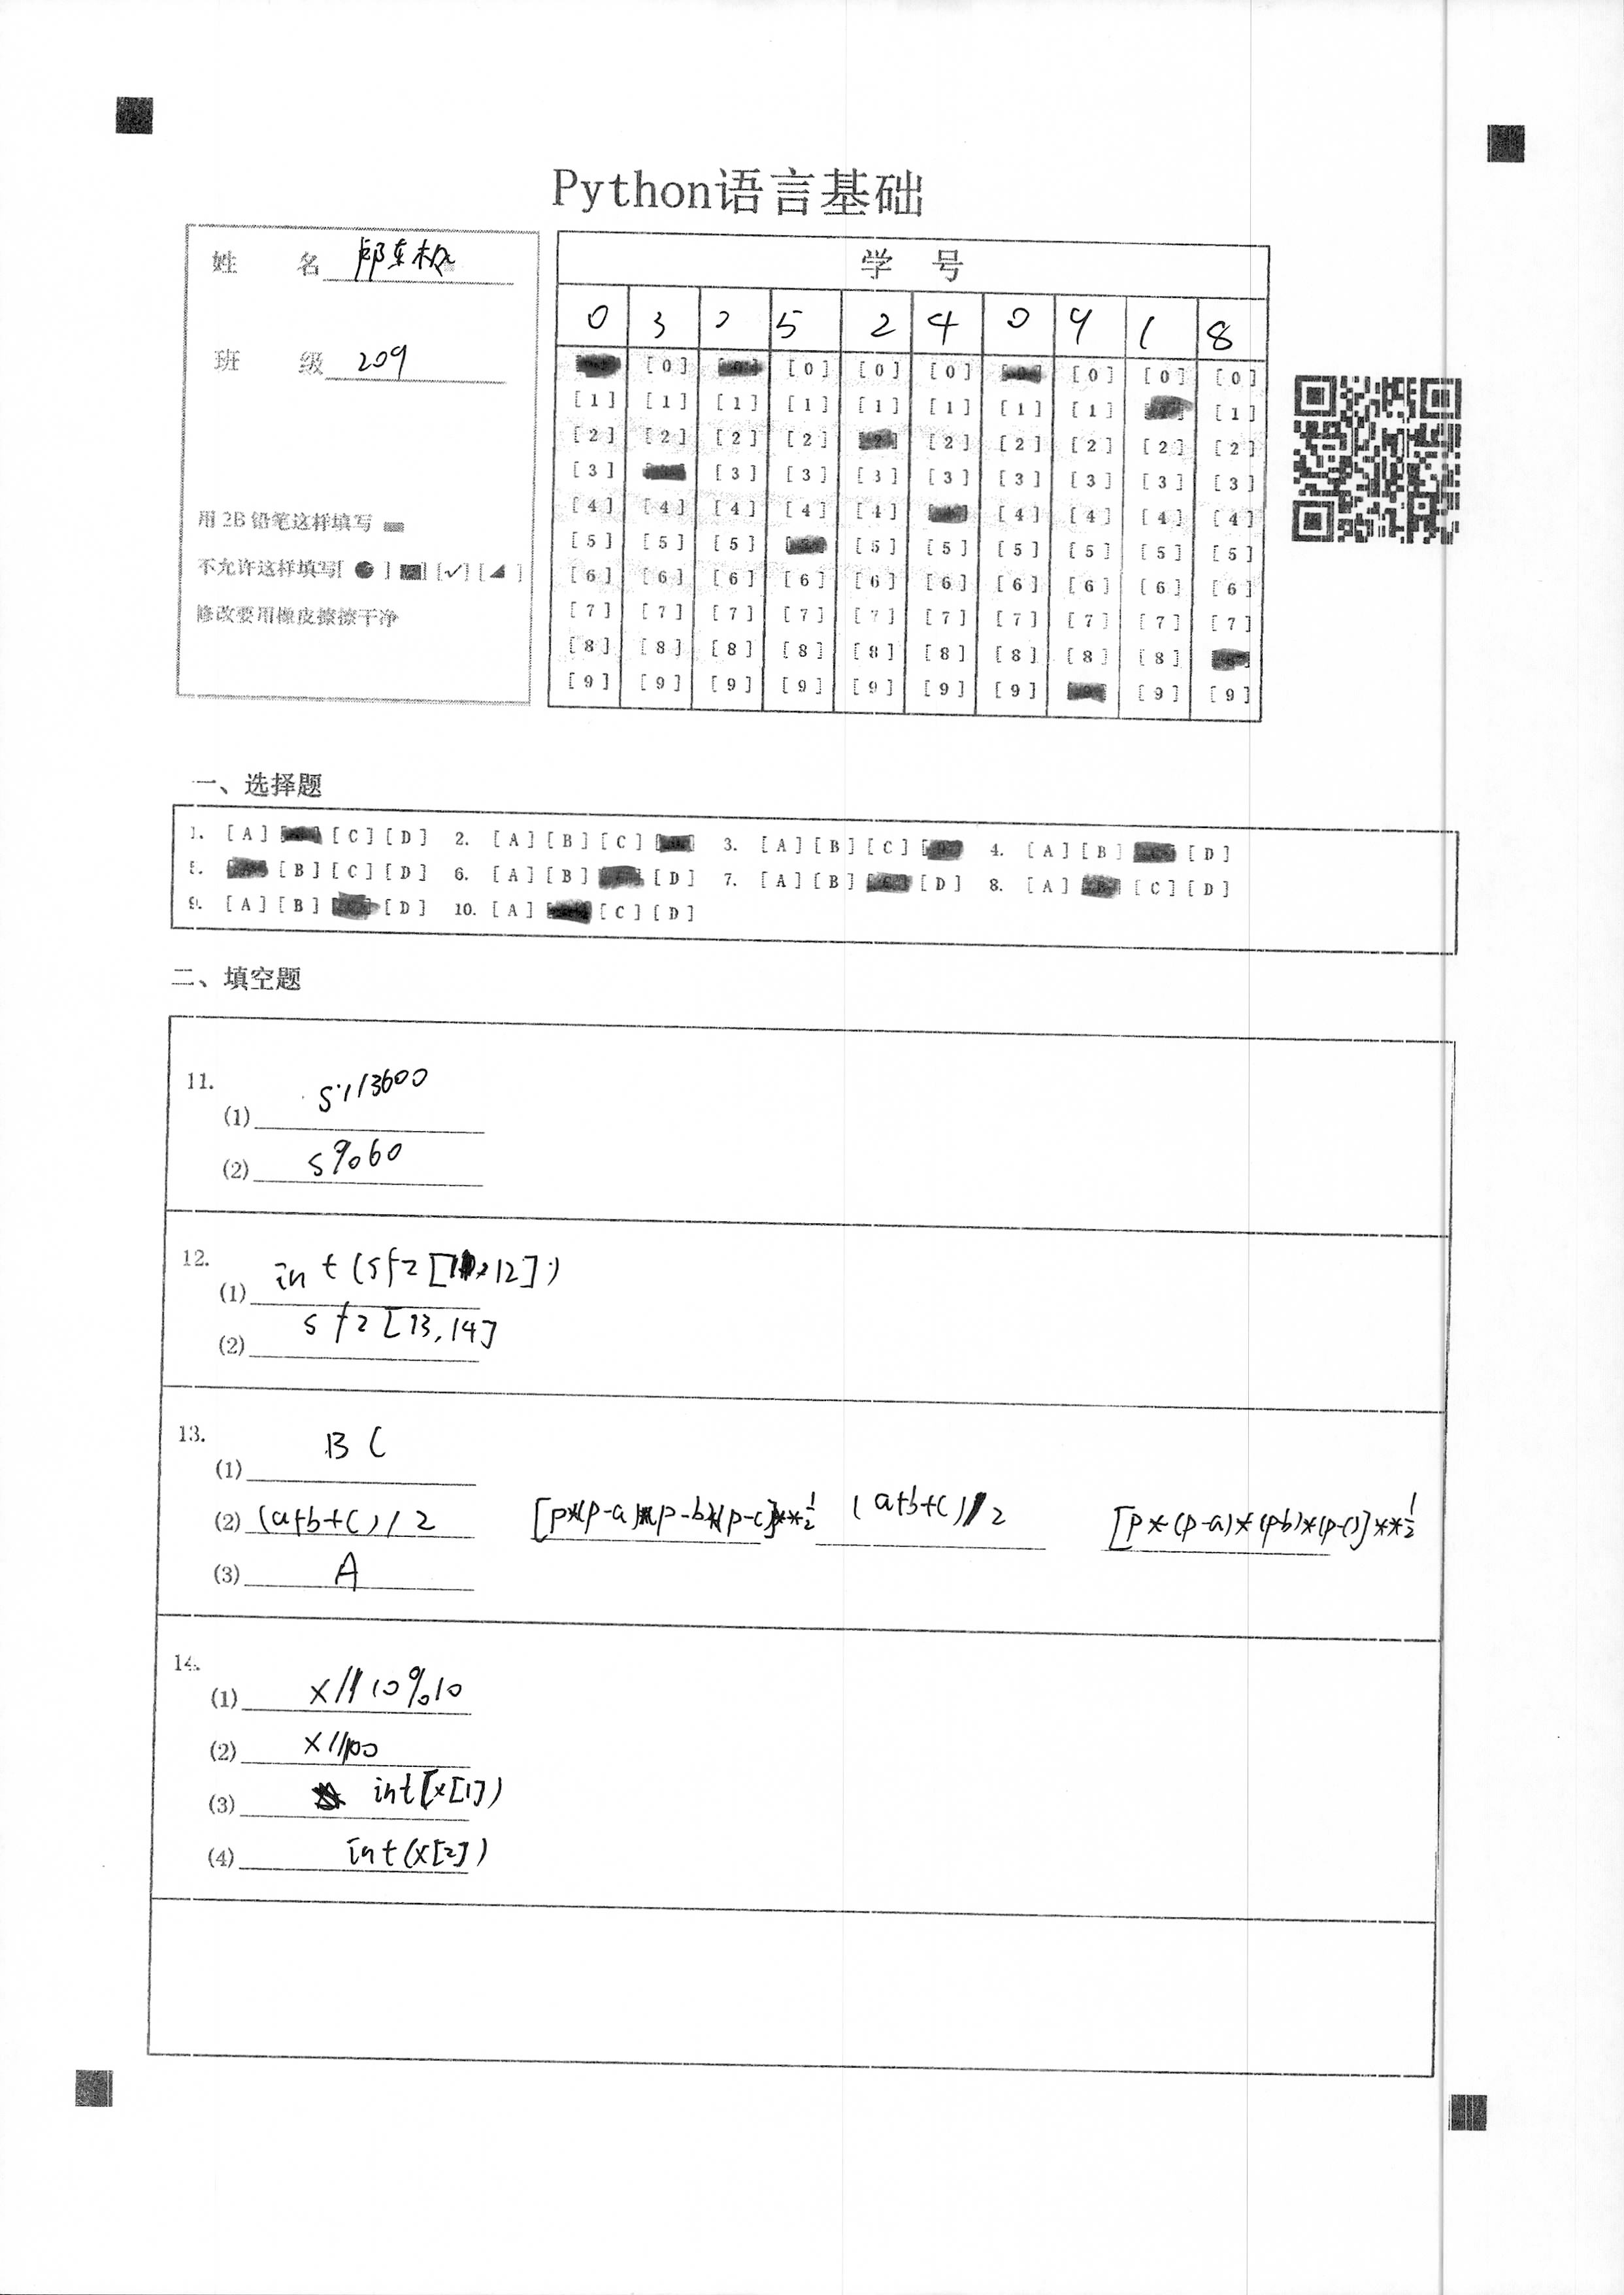 Python语言基础
姓 名
班 级 209
用 2B 铅笔这样填写
不允许这样填写[ ● ] [■] [✓] [◢ ]
修改要用橡皮擦擦干净
学 号
0 3 0 5 2 4 0 9 1 8
[0] [0] [0] [0] [0] [0] [0]
[1] [1] [1] [1] [1] [1] [1] [1] [1]
[2] [2] [2] [2] [2] [2] [2] [2] [2]
[3] [3] [3] [3] [3] [3] [3] [3] [3]
[4] [4] [4] [4] [4] [4] [4] [4] [4]
[5] [5] [5] [5] [5] [5] [5] [5] [5]
[6] [6] [6] [6] [6] [6] [6] [6] [6] [6]
[7] [7] [7] [7] [7] [7] [7] [7] [7] [7]
[8] [8] [8] [8] [8] [8] [8] [8] [8]
[9] [9] [9] [9] [9] [9] [9] [9] [9]
一、选择题
1. [A] [C] [D] 2. [A] [B] [C] 3. [A] [B] [C] 4. [A] [B] [D]
5. [B] [C] [D] 6. [A] [B] [D] 7. [A] [B] [D] 8. [A] [C] [D]
9. [A] [B] [D] 10. [A] [C] [D]
二、填空题
11.
(1) s//3600
(2) s%60
12.
(1) int(sfz[ 12])
(2) sfz[13,14]
13.
(1) BC
(2) (a+b+c)/2 [p*(p-a)*(p-b)*(p-c)]**½ (a+b+c)/2 [p*(p-a)*(p-b)*(p-c)]**½
(3) A
14.
(1) x//10%10
(2) x//100
(3) int(x[1])
(4) int(x[2])